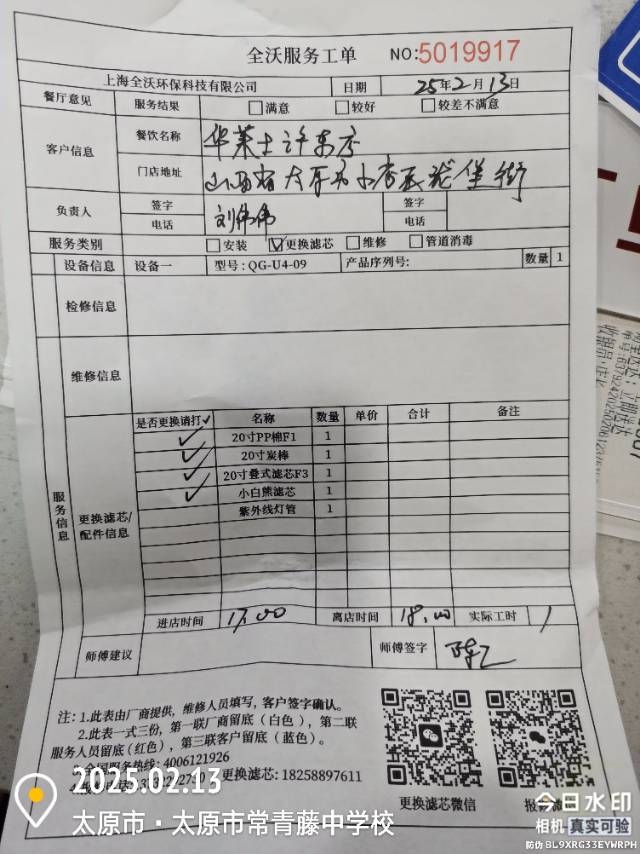 全沃服务工单 NO:5019917
上海全沃环保科技有限公司 日期 25年2月13日
餐厅意见 服务结果 满意 较好 较差不满意
客户信息 餐饮名称 华莱士许东店
门店地址 山西省太原市小店区龙堡街
负责人 签字 刘伟伟 签字
电话 电话
服务类别 安装 更换滤芯 维修 管道消毒
设备信息 设备一 型号:QG-U4-09 产品序列号: 数量 1
检修信息
维修信息
服务信息
更换滤芯/配件信息
是否更换请打✓ 名称 数量 单价 合计 备注
✓ 20寸PP棉F1 1
✓ 20寸炭棒 1
✓ 20寸叠式滤芯F3 1
✓ 小白熊滤芯 1
紫外线灯管 1
进店时间 17.00 离店时间 18.00 实际工时 1
师傅建议 师傅签字
注:1.此表由厂商提供,维修人员填写,客户签字确认。
2.此表一式三份,第一联厂商留底(白色),第二联
服务人员留底(红色),第三联客户留底(蓝色)。
全国服务热线:4006121926
更换滤芯:18258897611
更换滤芯微信
2025.02.13
太原市·太原市常青藤中学校
今日水印
相机 真实可验
防伪 BL9XRG33EYWRPH